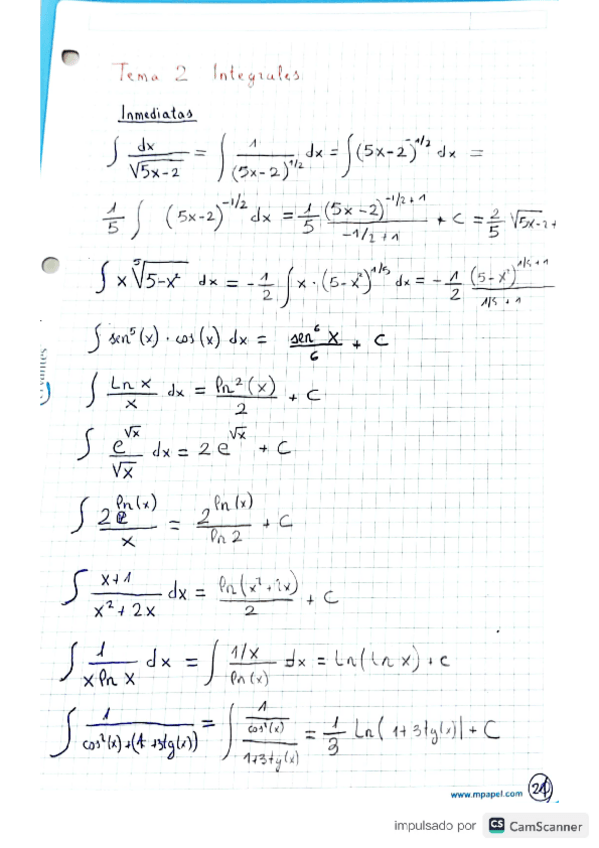 Tema 2 Integrales
Inmediatas
∫ dx/√(5x-2) = ∫ 1/(5x-2)^(1/2) dx = ∫(5x-2)^(-1/2) dx =
1/5 ∫ (5x-2)^(-1/2) dx = 1/5 (5x-2)^(-1/2+1)/(-1/2+1) + C = 2/5 √(5x-2) +
∫ x ⁵√(5-x²) dx = -1/2 ∫ x · (5-x²)^(1/5) dx = -1/2 (5-x²)^(1/5+1)/(1/5+1)
∫ sen⁵(x) · cos(x) dx = sen⁶x/6 + C
∫ Ln x/x dx = ln²(x)/2 + C
∫ e^(√x)/√x dx = 2e^(√x) + C
∫ 2^(ln(x))/x = 2^(ln(x))/ln 2 + C
∫ (x+1)/(x²+2x) dx = ln(x²+2x)/2 + C
∫ 1/(x ln x) dx = ∫ (1/x)/ln(x) dx = Ln(Ln x) + C
∫ 1/(cos²(x)+(1+3tg(x))) = ∫ (1/cos²(x))/(1+3tg(x)) = 1/3 Ln(1+3tg(x)| + C
www.mpapel.com
21
impulsado por CS CamScanner